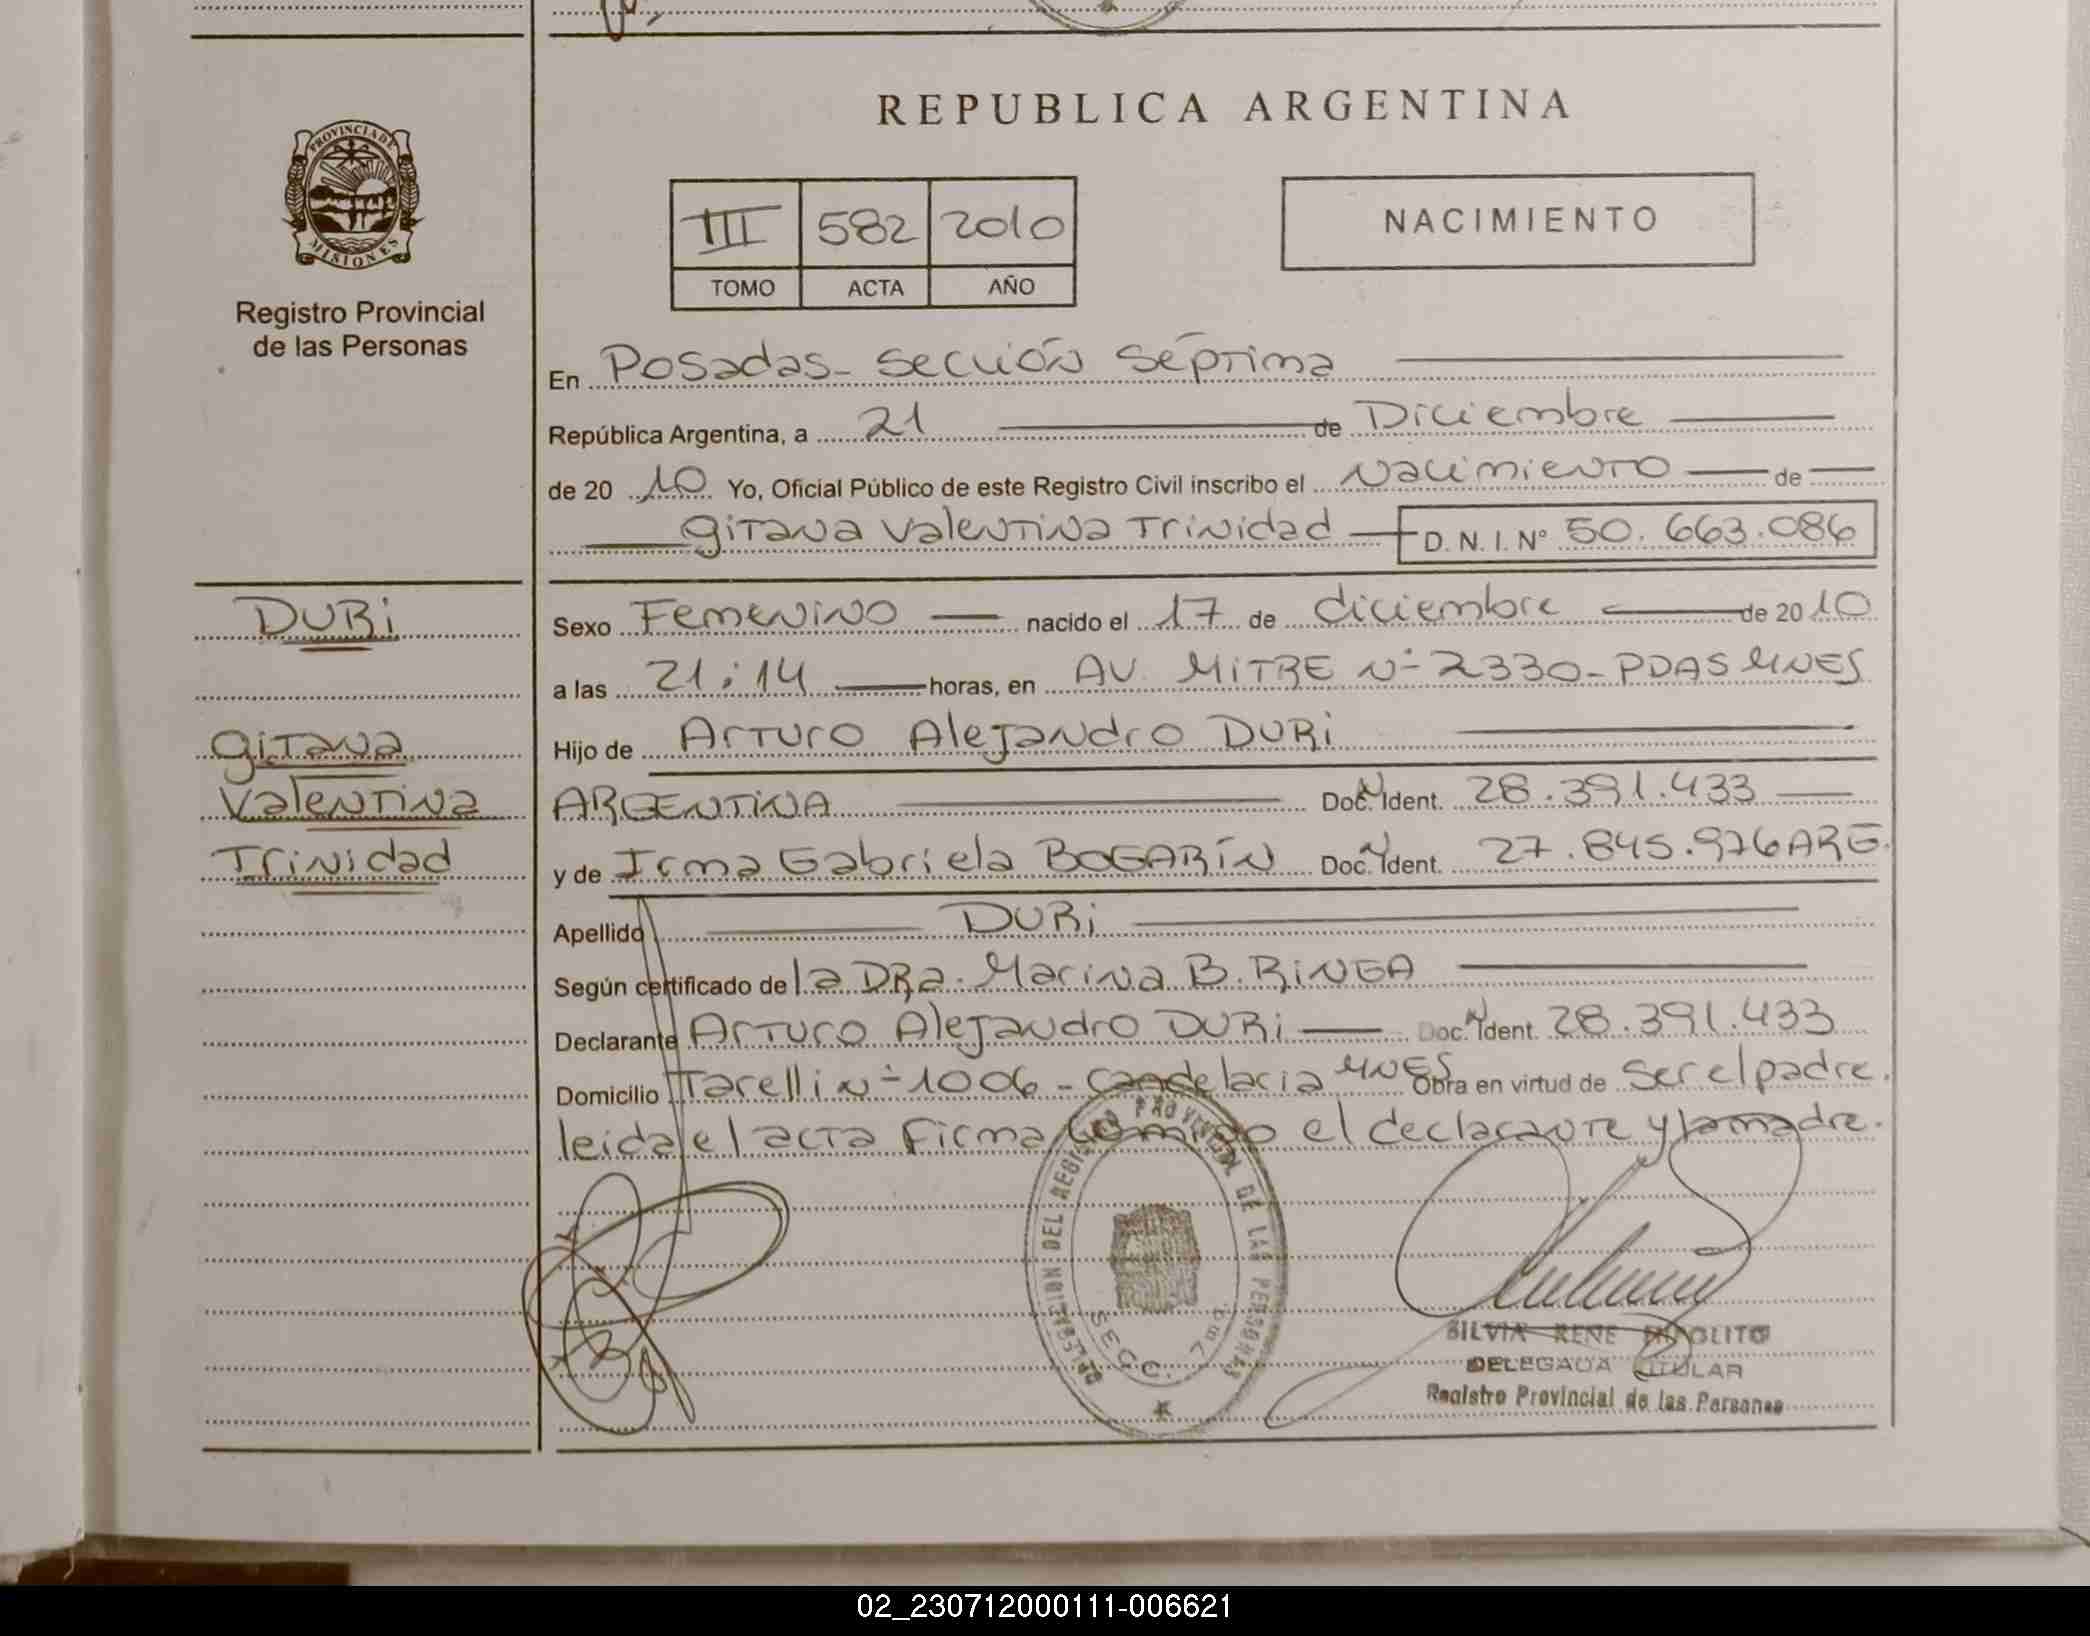 REPUBLICA ARGENTINA
PROVINCIA DE
MISIONES
Registro Provincial
de las Personas
III 582 2010
TOMO ACTA AÑO
NACIMIENTO
En Posadas - sección séptima
República Argentina, a 21 de Diciembre
de 20 10 Yo, Oficial Público de este Registro Civil inscribo el Nacimiento de
Gitana Valentina Trinidad D. N. I. N° 50.663.086
DURi
Gitana
Valentina
Trinidad
Sexo Femenino nacido el 17 de diciembre de 20 10
a las 21:14 horas, en AV. MiTRE N° 2330 - PDAS MNES
Hijo de Arturo Alejandro DURi
ARGENTINA Doc. N Ident. 28.391.433
y de Irma Gabriela BOGARÍN Doc. N Ident. 27.845.976 ARG.
Apellido DURi
Según certificado de la DRa. Marina B. RiNGA
Declarante Arturo Alejandro DURi Doc. N Ident. 28.391.433
Domicilio Tarelli N° 1006 - Candelaria MNES Obra en virtud de ser el padre.
leida el acta Firma conmigo el declarante y la madre.
DELEGACION DEL REGISTRO PROVINCIAL DE LAS PERSONAS
SECC. 7ma
SILVIA RENE HIPOLITO
DELEGADA TITULAR
Registro Provincial de las Personas
02_230712000111-006621